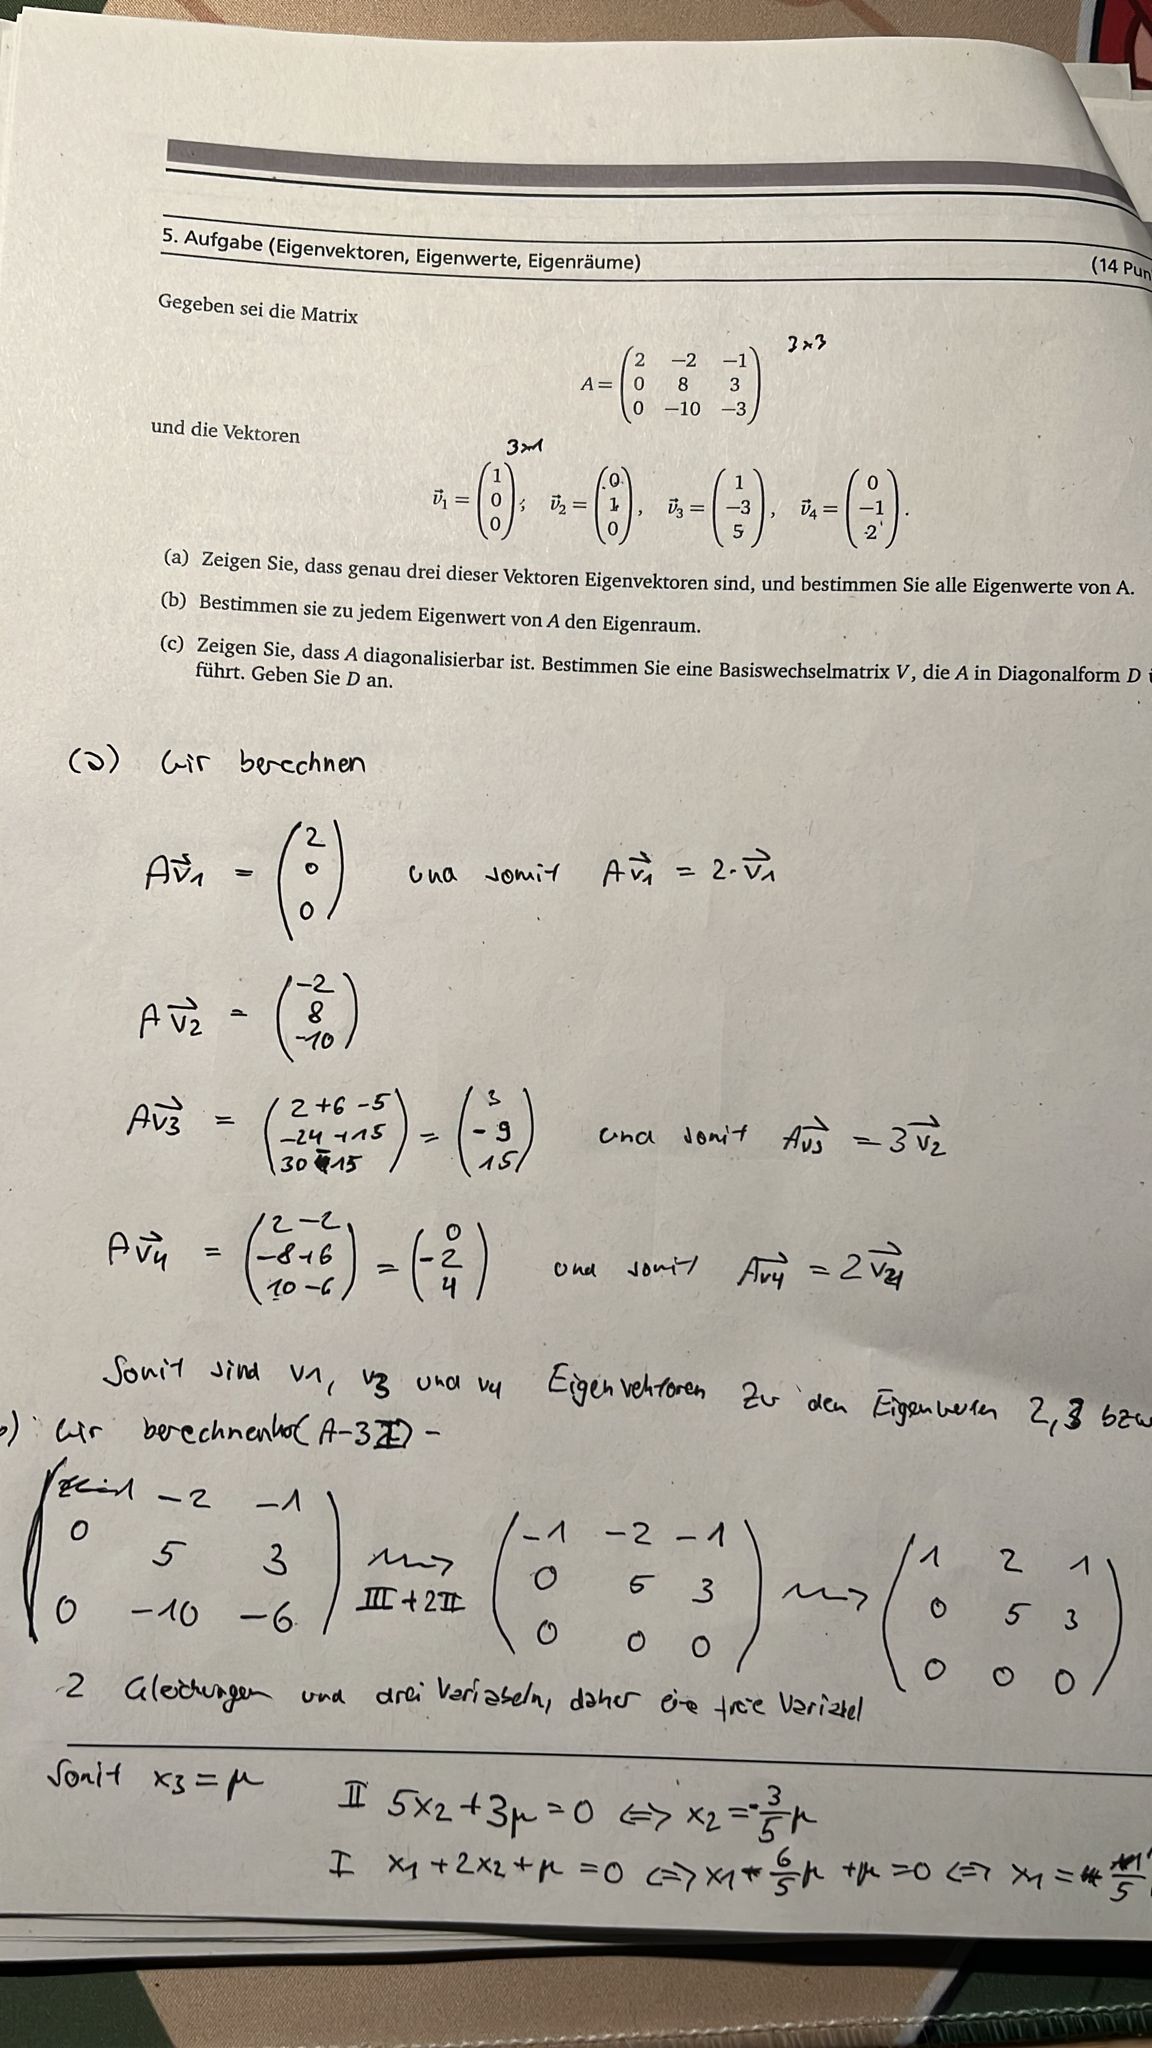 5. Aufgabe (Eigenvektoren, Eigenwerte, Eigenräume) (14 Pun
Gegeben sei die Matrix
3x3
A = (2 −2 −1
0 8 3
0 −10 −3)
und die Vektoren
3x1
v⃗1 = (1 0 0), v⃗2 = (0 1 0), v⃗3 = (1 −3 5), v⃗4 = (0 −1 2).
(a) Zeigen Sie, dass genau drei dieser Vektoren Eigenvektoren sind, und bestimmen Sie alle Eigenwerte von A.
(b) Bestimmen sie zu jedem Eigenwert von A den Eigenraum.
(c) Zeigen Sie, dass A diagonalisierbar ist. Bestimmen Sie eine Basiswechselmatrix V, die A in Diagonalform D ü
führt. Geben Sie D an.
(a) Wir berechnen
Av⃗1 = (2 0 0) und somit Av⃗1 = 2·v⃗1
Av⃗2 = (-2 8 -10)
Av⃗3 = (2+6-5 -24+15 30-15) = (3 -9 15) und somit Av⃗3 = 3v⃗2
Av⃗4 = (2-2 -8+6 10-6) = (0 -2 4) und somit Av⃗4 = 2v⃗4
Somit sind v1, v3 und v4 Eigenvektoren zu den Eigenwerten 2,3 bzw
b) Wir berechnen (A-3I) -
( -2 -1
0 5 3
0 -10 -6) ⇝ III+2II (-1 -2 -1
0 5 3
0 0 0) ⇝ (1 2 1
0 5 3
0 0 0)
2 Gleichungen und drei Variabeln, daher eine freie Variabel
Somit x3 = μ II 5x2+3μ=0 ⇔ x2 = -3/5 μ
I x1+2x2+μ=0 ⇔ x1 - 6/5 μ +μ=0 ⇔ x1 =